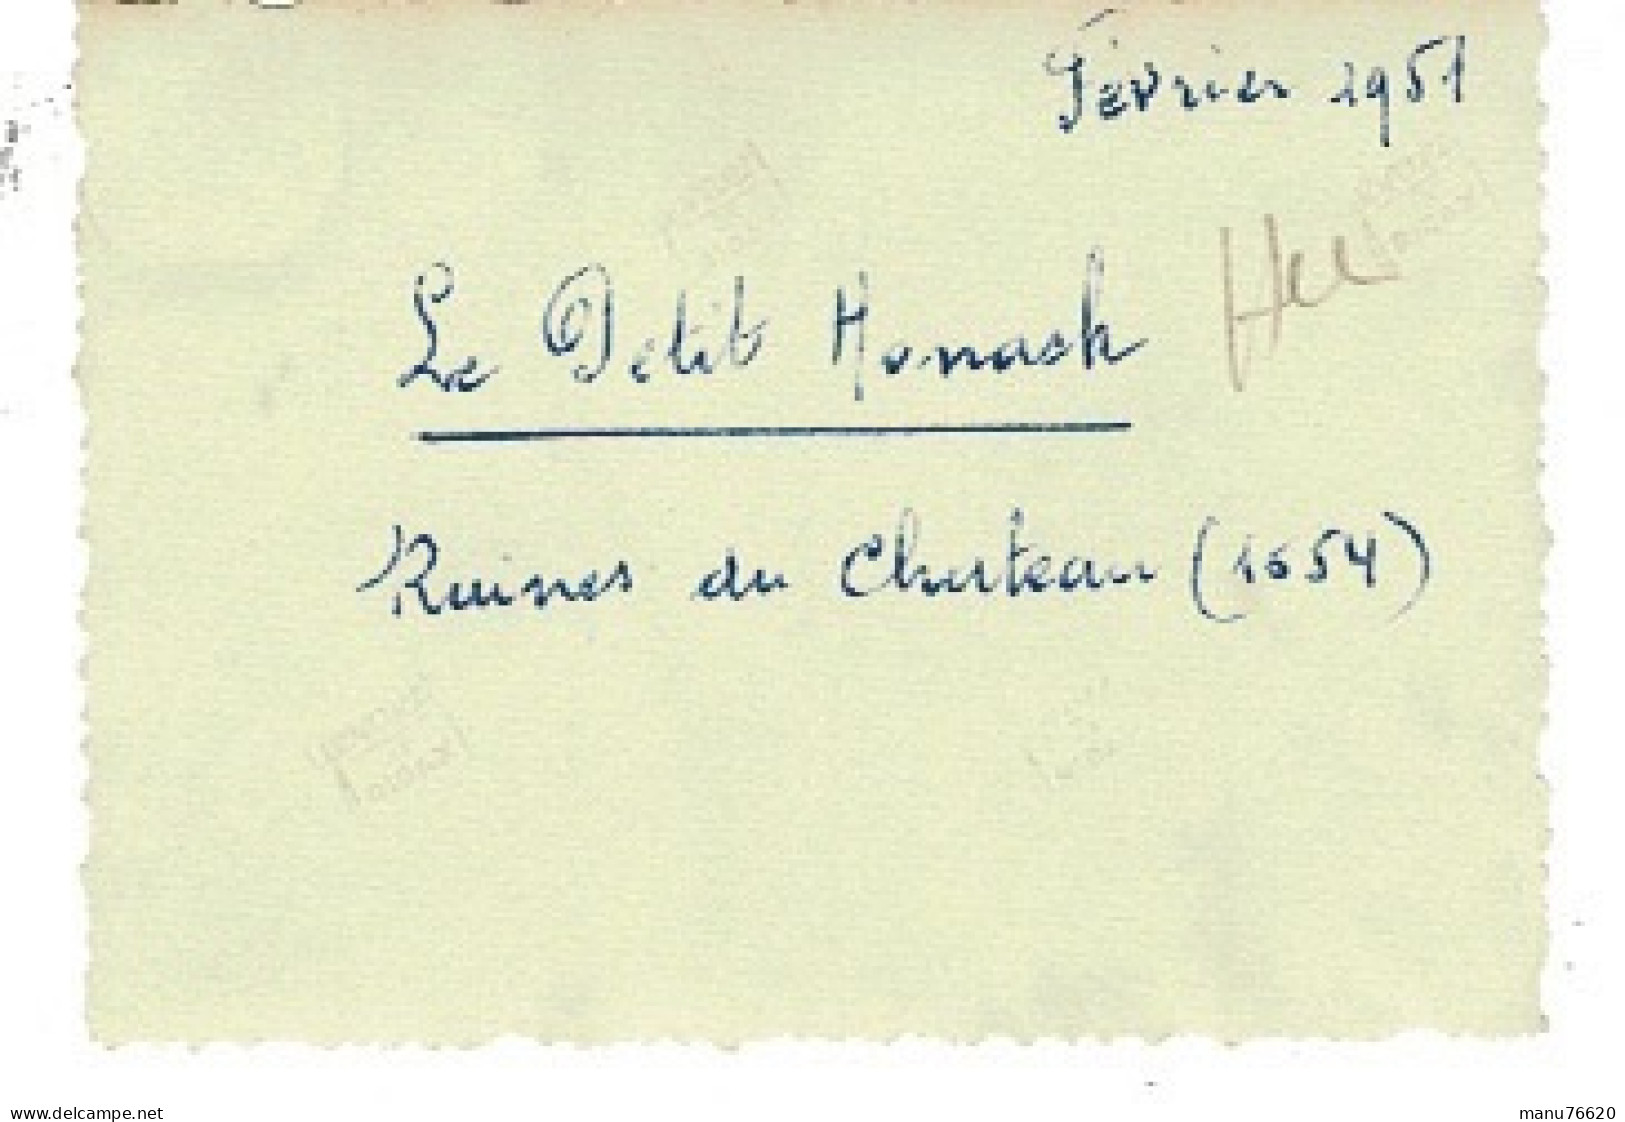 Février 1951
Le Petit Monach
Ruines du Chateau (1654)
www.delcampe.net
manu76620